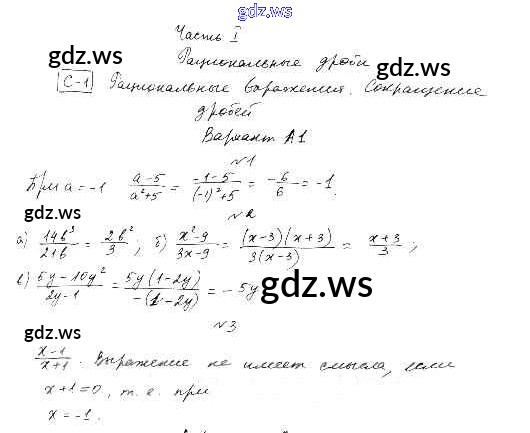 gdz.ws
Часть I
gdz.ws Рациональные дроби gdz.ws
С-1 Рациональные выражения. Сокращение
дробей
Вариант А1
№1
При a = -1 (a-5)/(a²+5) = (-1-5)/((-1)²+5) = -6/6 = -1.
gdz.ws №2
а) 14b³/21b = 2b²/3; б) (x²-9)/(3x-9) = (x-3)(x+3)/3(x-3) = (x+3)/3;
в) (5y-10y²)/(2y-1) = 5y(1-2y)/-(1-2y) = -5y gdz.ws
gdz.ws №3
(x-1)/(x+1). Выражение не имеет смысла, если
x+1=0, т.е. при
x = -1.